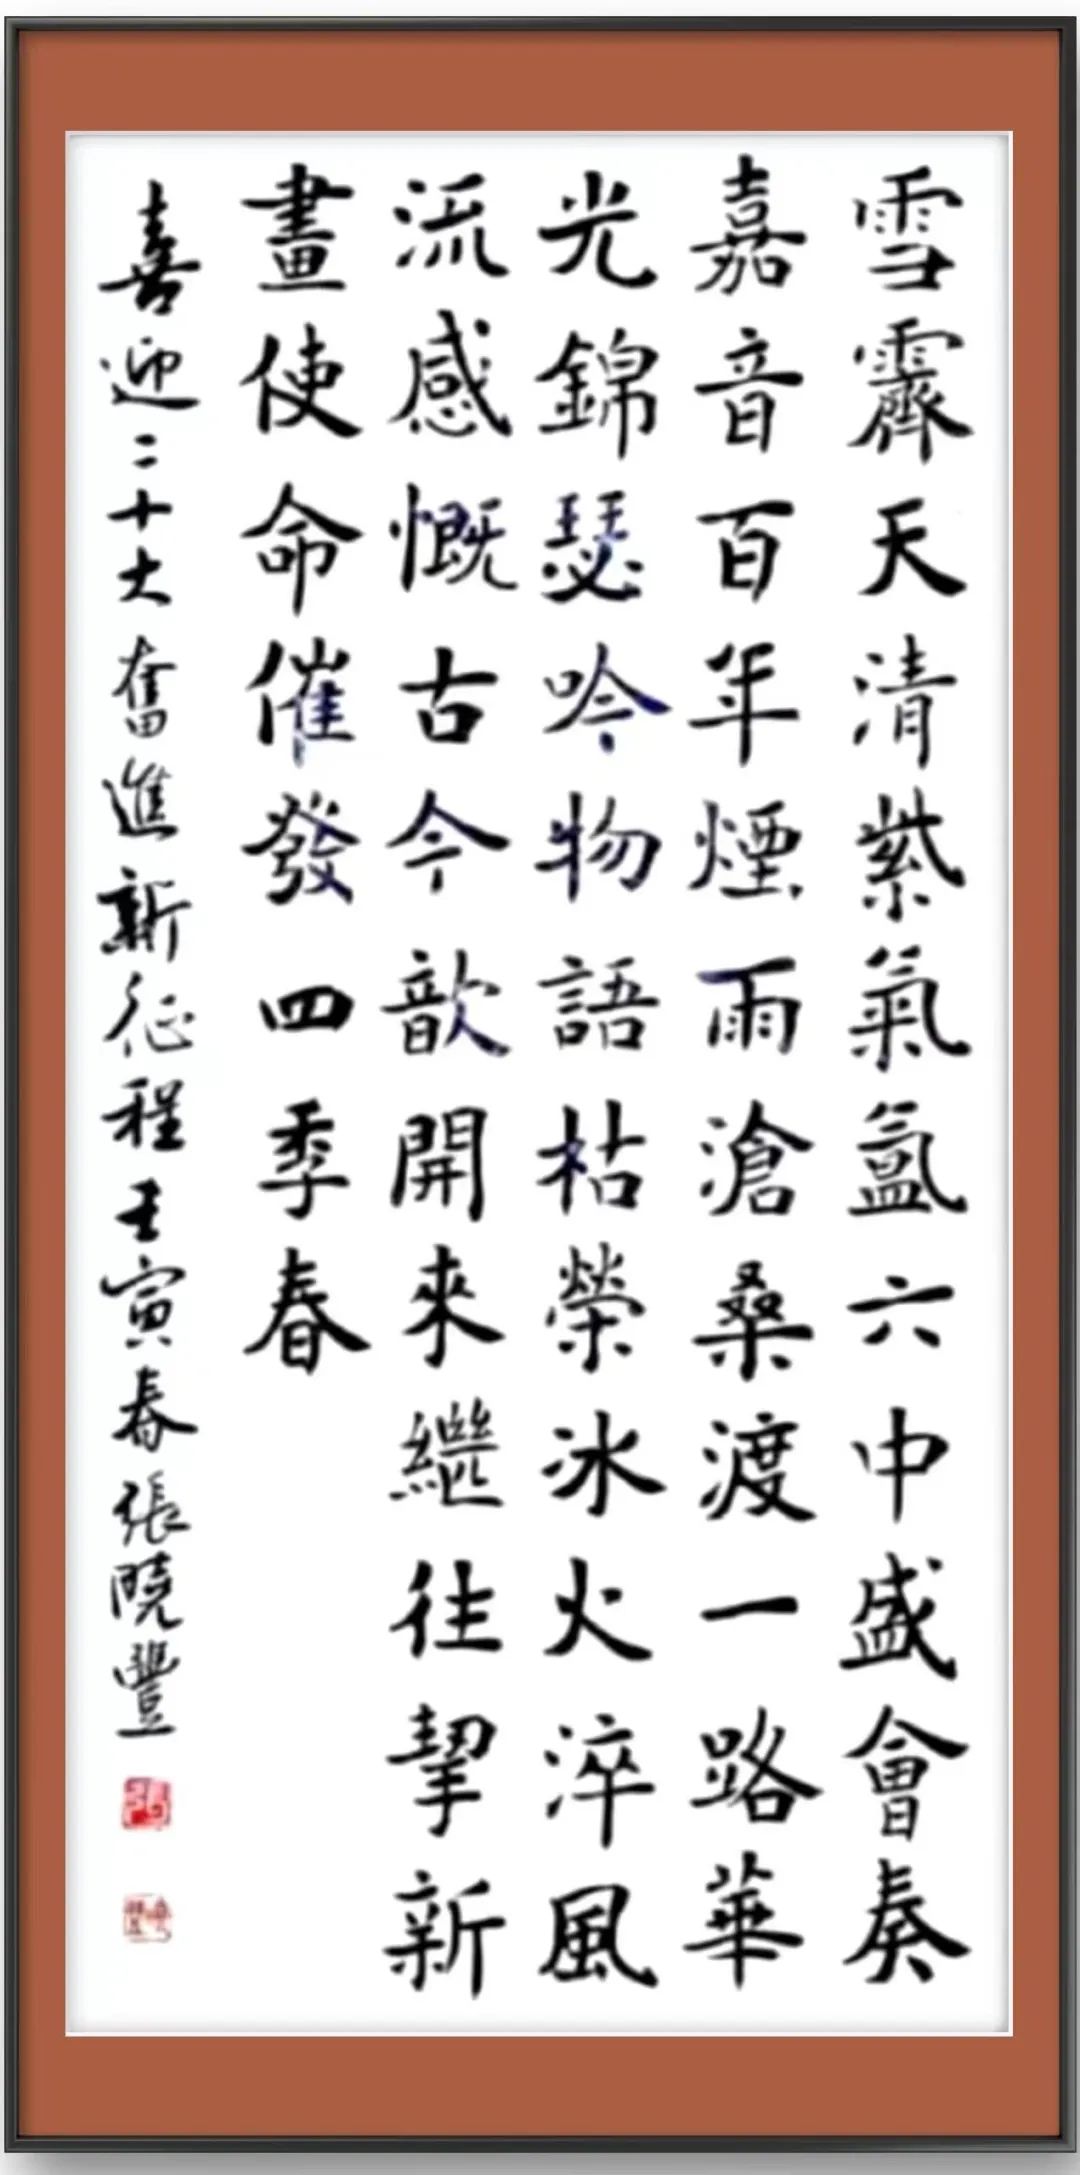 雪霽天清紫氣氳六中盛會奏
嘉音百年煙雨滄桑渡一路華
光錦瑟吟物語枯榮冰火淬風
流感慨古今歆開來繼往挈新
畫使命催發四季春
喜迎二十大奮進新征程壬寅春張曉豐